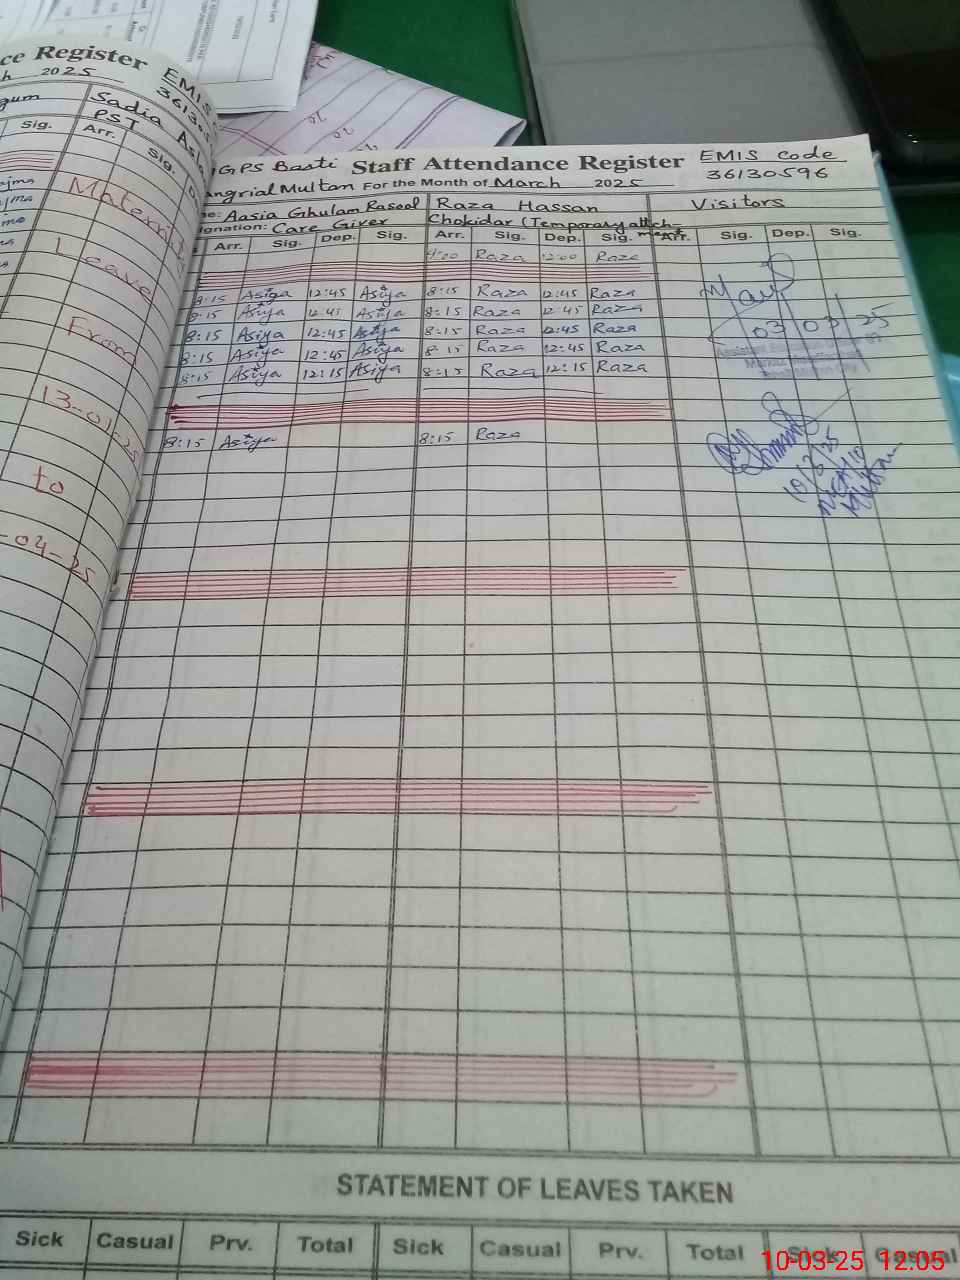 ce Register EMIS
2025 36130
gum Sadia
PST
Sig. Arr. Sig.
Maternity
Leave
From
13-01-25
to
-04-25
GPS Basti Staff Attendance Register EMIS code
angrial Multan For the Month of March 2025 36130596
Aasia Ghulam Rasool Raza Hassan Visitors
ignation: Care Giver Chokidar (Temporary attachment
Arr. Sig. Dep. Sig. Arr. Sig. Dep. Sig. Arr. Sig. Dep. Sig.
Raza 12:00 Raza
8:15 Asiya 12:45 Asiya 8:15 Raza 12:45 Raza
8:15 Asiya 12:45 Asiya 8:15 Raza 12:45 Raza
8:15 Asiya 12:45 Asiya 8:15 Raza 12:45 Raza
8:15 Asiya 12:45 Asiya 8:15 Raza 12:45 Raza
8:15 Asiya 12:15 Asiya 8:15 Raza 12:15 Raza
03 03 25
8:15 Asiya 8:15 Raza
10/3/25
STATEMENT OF LEAVES TAKEN
Sick Casual Prv. Total Sick Casual Prv. Total Sick Casual
10-03-25 12:05